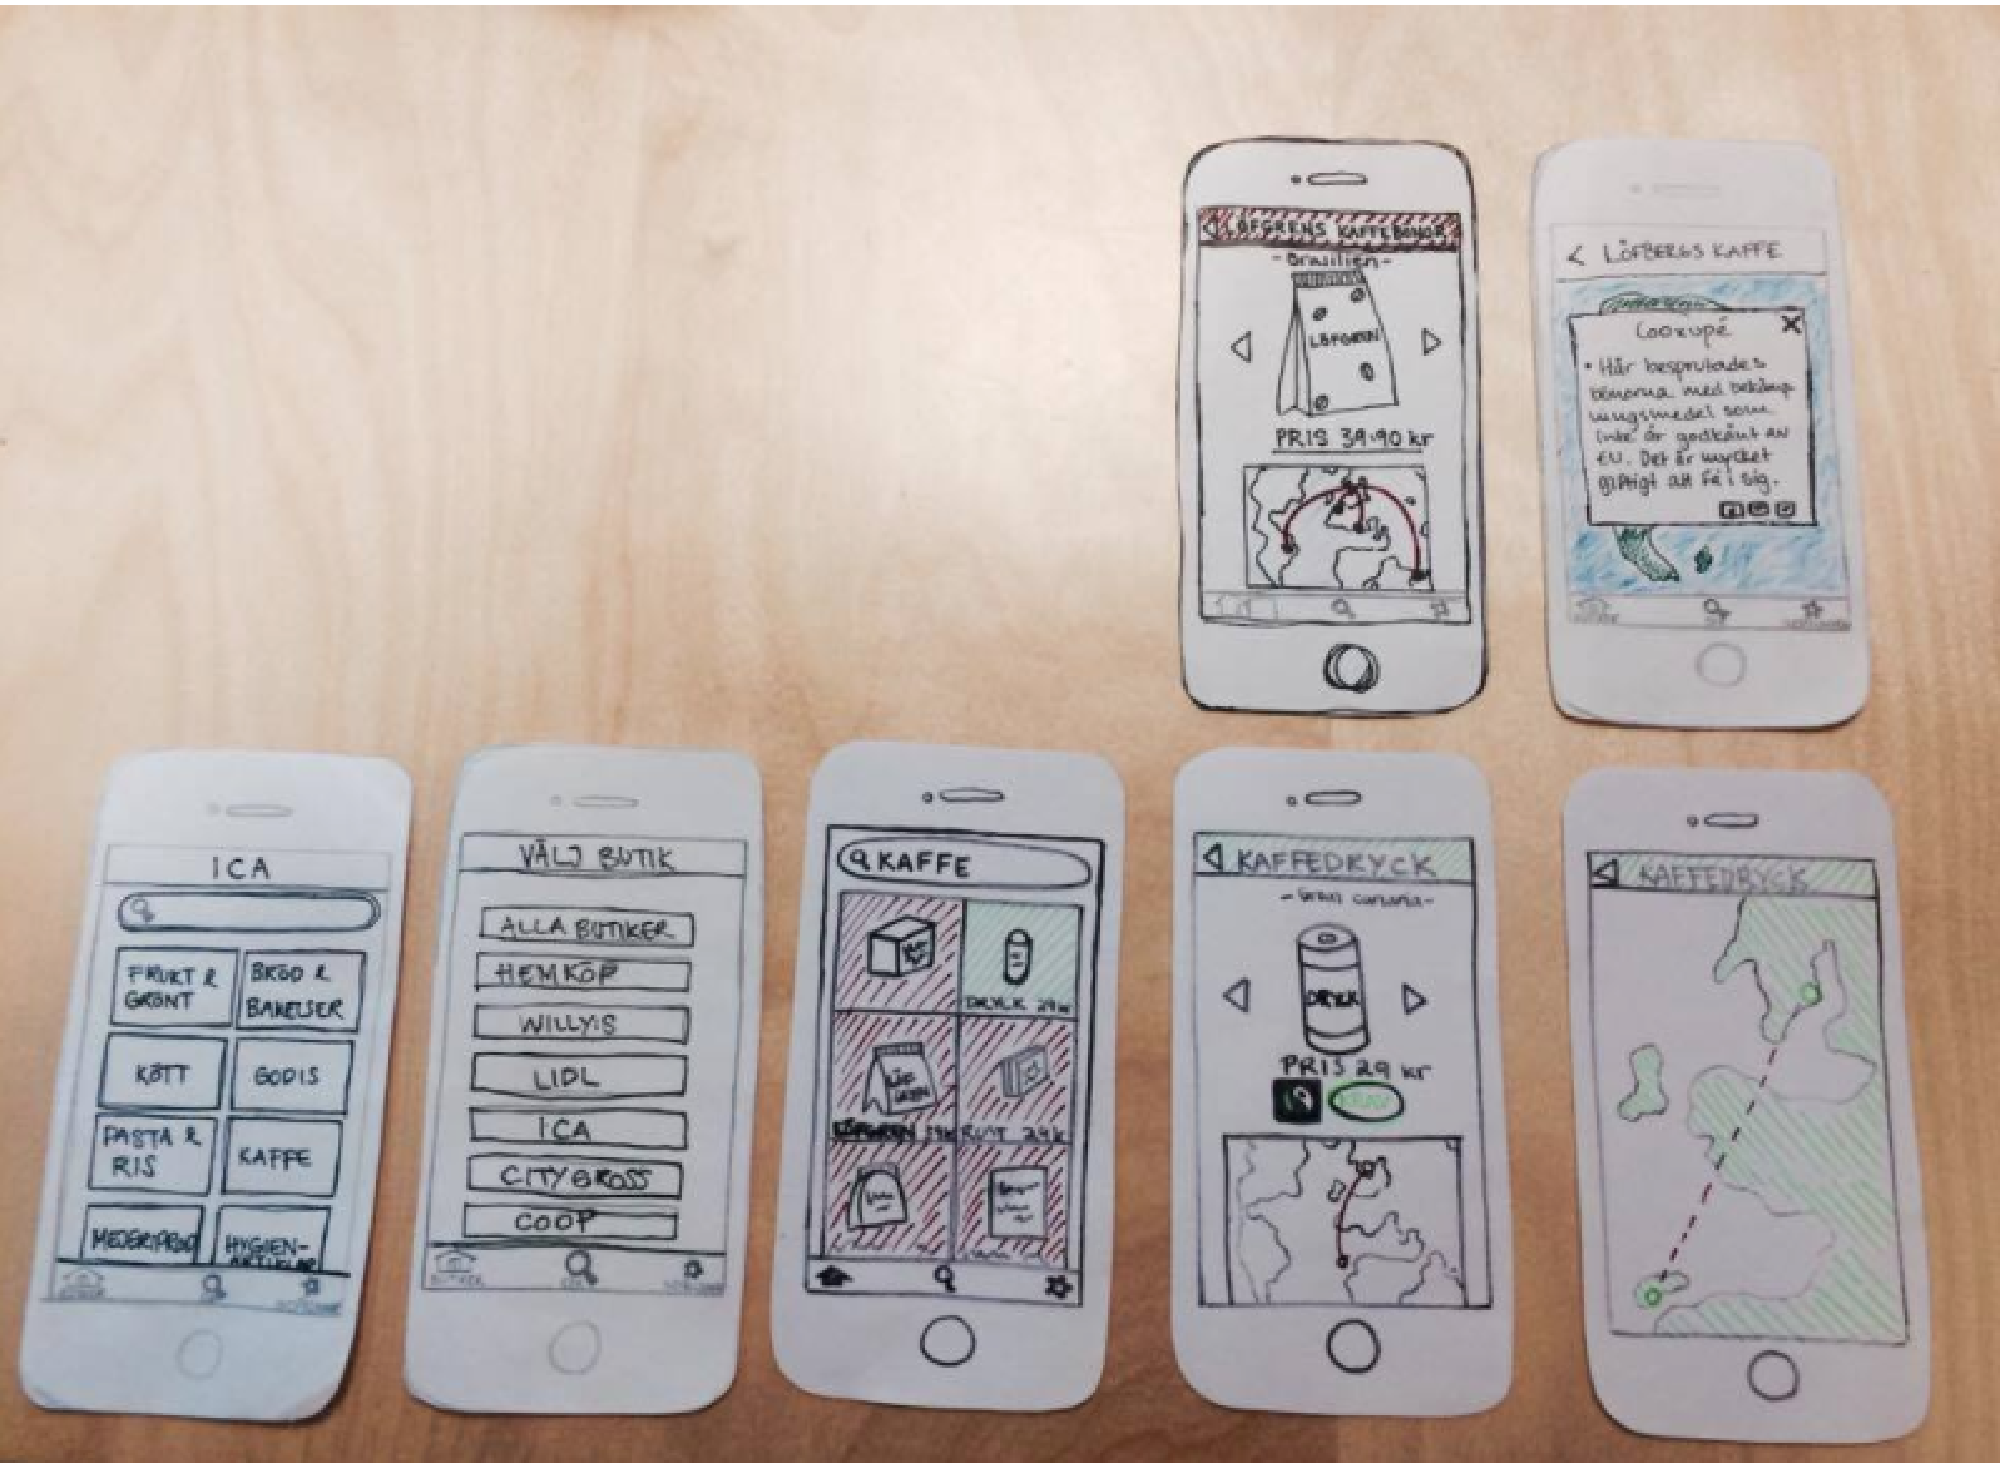 LÖFGRENS KAFFEBÖNOR
- Brasilien -
LÖFGREN
PRIS 39.90 kr
< LÖFBERGS KAFFE
Cooxupé X
• Här besprutades
bönorna med bekämp
ningsmedel som
inte är godkänt av
EU. Det är mycket
giftigt att få i sig.
ICA
FRUKT &
GRÖNT
BRÖD &
BAKELSER
KÖTT
GODIS
PASTA &
RIS
KAFFE
MEJERIPROD
HYGIEN-
ARTIKLAR
VÄLJ BUTIK
ALLA BUTIKER
HEMKÖP
WILLYS
LIDL
ICA
CITYGROSS
COOP
BUTIKER
KAFFE
DRYCK 29k
LÖFGREN 39k
29k
KAFFEDRYCK
- Gran canaria -
DRYCK
PRIS 29 kr
KRAV
KAFFEDRYCK